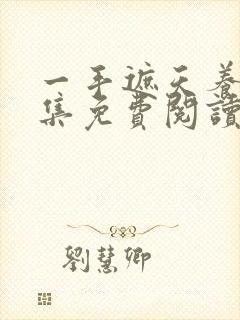 一手遮天養
集免費閱讀
劉慧卿